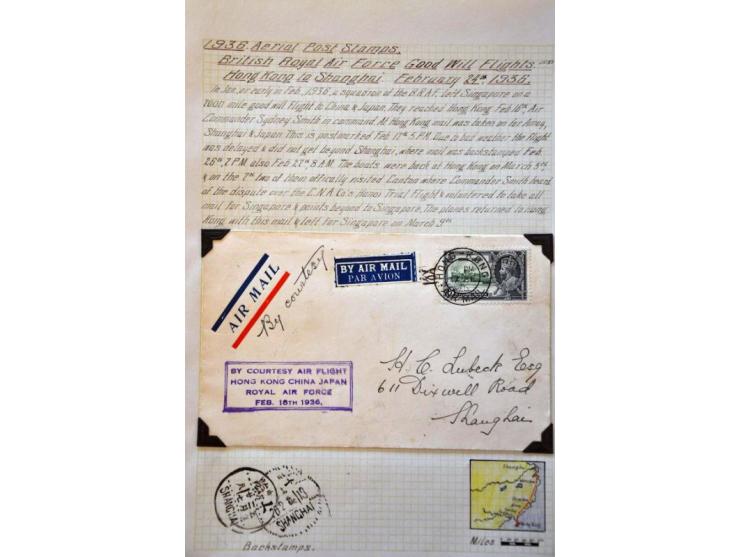 1936. Aerial Post Stamps.
British Royal Air Force Good Will Flights.
Hong Kong to Shanghai February 24th 1936.
In Jan, or early in Feb, 1936, a squadron of the B.R.A.F. left Singapore on a
mile good will flight to China & Japan. They reached Hong Kong Feb 16th, Air
Commander Sydney Smith in command. At Hong Kong mail was taken on for Amoy,
Shanghai & Japan. This is postmarked Feb 17th 5 P.M. Due to bad weather the flight
was delayed & did not get beyond Shanghai, where mail was backstamped Feb.
26th, 7 P.M. also Feb 27th 8 A.M. The boats were back at Hong Kong on March 5th
& on the 7th two of them offically visited Canton where Commander Smith heard
of the dispute over the C.N.A Co's Hanoi Trial Flight & volunteered to take all
mail for Singapore & points beyond to Singapore. The planes returned to Hong
Kong with this mail & left for Singapore on March 9th
AIR MAIL
By courtesy
BY AIR MAIL
PAR AVION
HONG KONG
BY COURTESY AIR FLIGHT
HONG KONG CHINA JAPAN
ROYAL AIR FORCE
FEB. 18TH 1936.
H. C. Lubeck Esq
611 Dixwell Road
Shanghai
SHANGHAI
SHANGHAI
Backstamps.
Miles